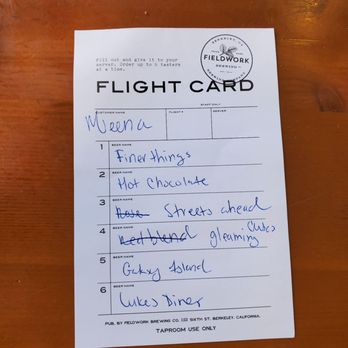 Fill out and give it to your
server. Order up to 6 tasters
at a time.
FIELDWORK
BREWING Co
FLIGHT CARD
STAFF ONLY
CUSTOMER NAME FLIGHT # SERVER
Meena
1 BEER NAME
Finer things
2 BEER NAME
Hot Chocolate
3 BEER NAME
Rose Streets ahead
4 BEER NAME
Red blend gleaming Cubes
5 BEER NAME
Galaxy Island
6 BEER NAME
Lukes Diner
PUB. BY FIELDWORK BREWING CO. 1160 SIXTH ST. BERKELEY, CALIFORNIA.
TAPROOM USE ONLY